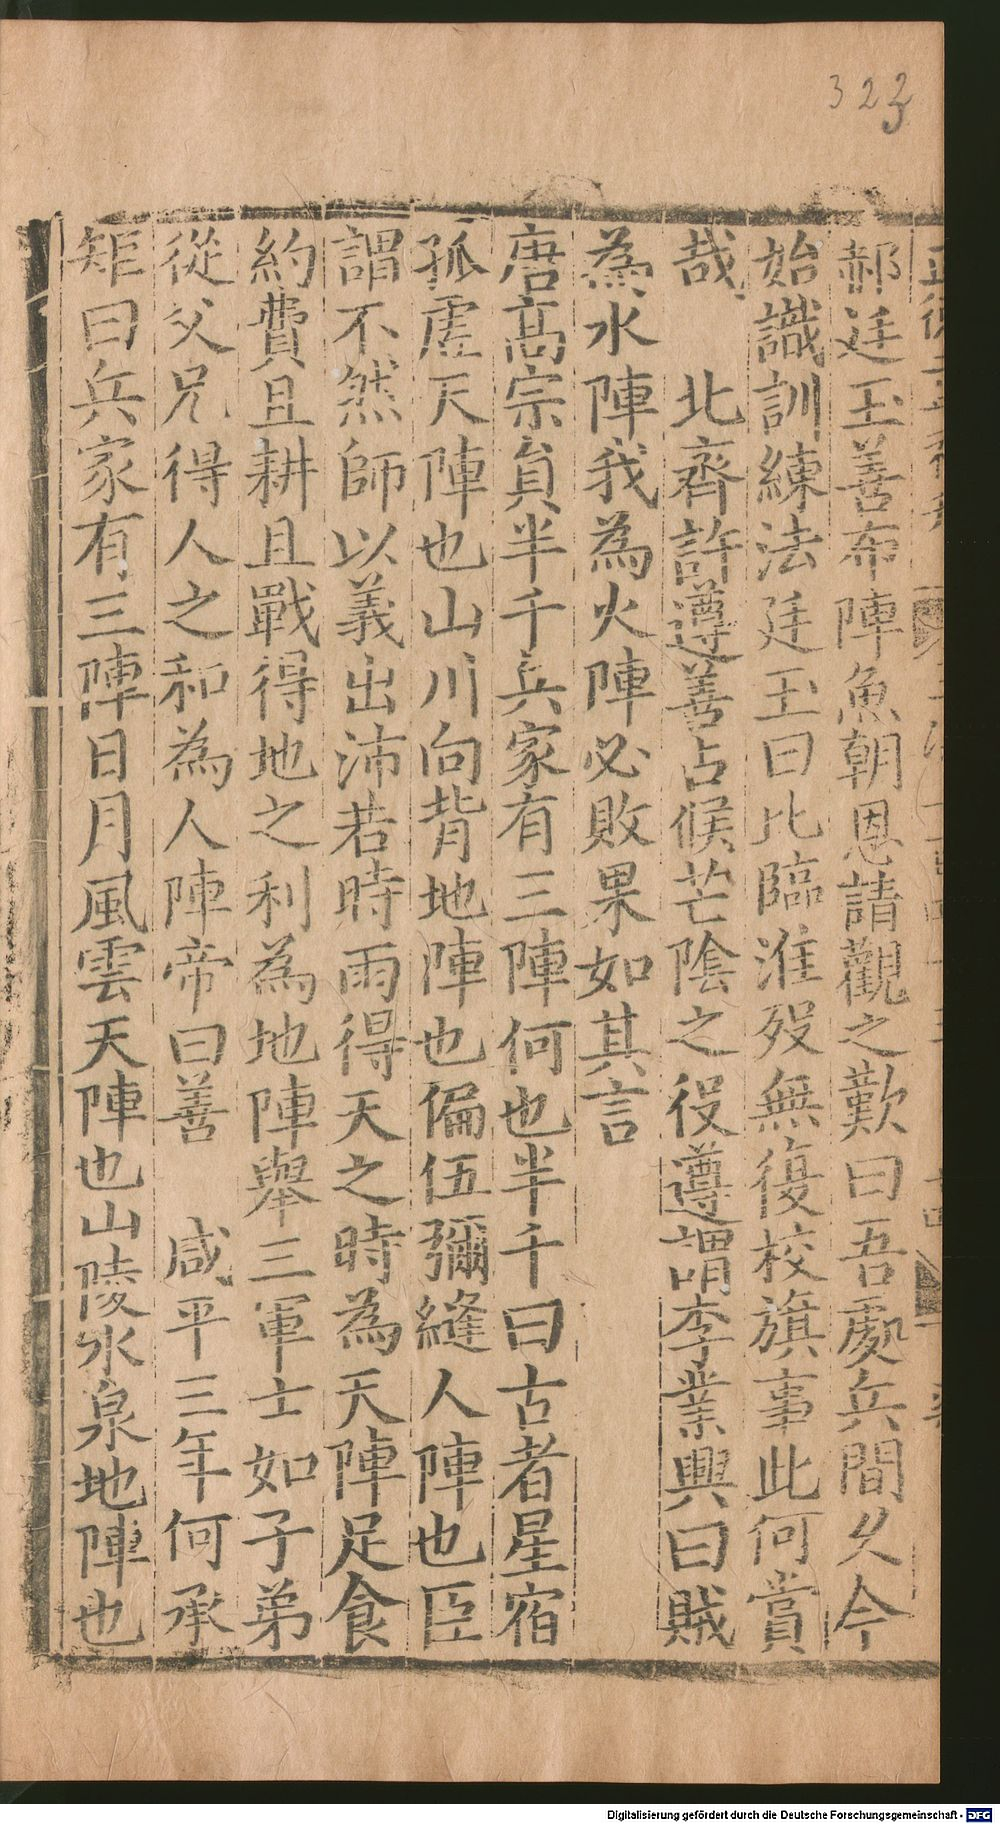 323
郝廷玉善布陣魚朝恩請觀之歎曰吾處兵間久今
始識訓練法廷玉曰比臨淮歿無復校旗事此何賞
哉　北齊許遵善占候芒陰之役遵謂李業興曰賊
為水陣我為火陣必敗果如其言
唐高宗負半千兵家有三陣何也半千曰古者星宿
孤虛天陣也山川向背地陣也偏伍彌縫人陣也臣
謂不然師以義出沛若時雨得天之時為天陣足食
約費且耕且戰得地之利為地陣舉三軍士如子弟
從父兄得人之和為人陣帝曰善　咸平三年何承
矩曰兵家有三陣日月風雲天陣也山陵水泉地陣也
Digitalisierung gefördert durch die Deutsche Forschungsgemeinschaft - DFG